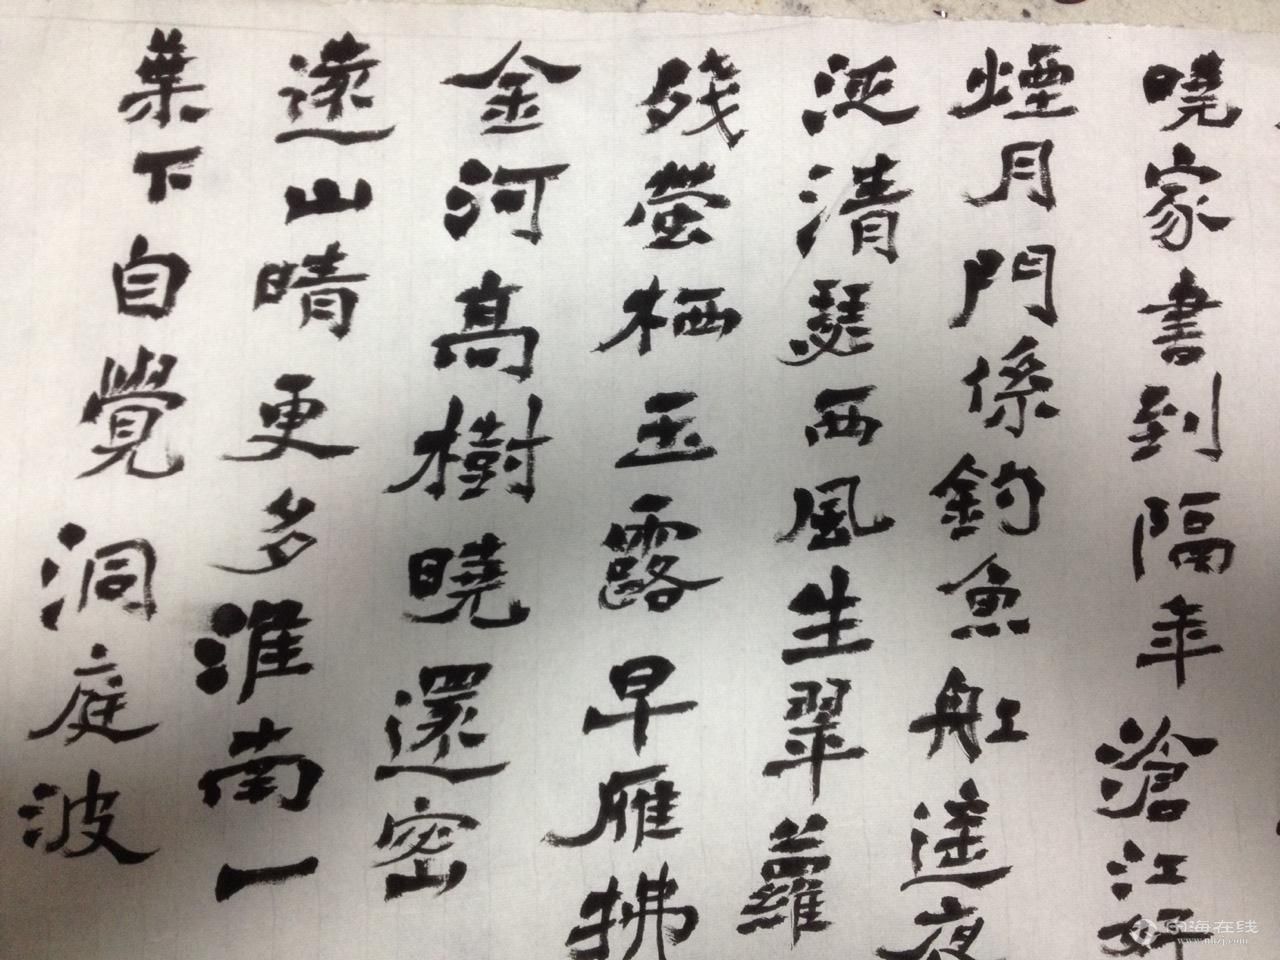 曉家書到隔年滄江好
煙月門係釣魚舡遙夜
泛清瑟西風生翠蘿
殘螢栖玉露早雁拂
金河高樹曉還密
遠山晴更多淮南一
葉下自覺洞庭波
海在线